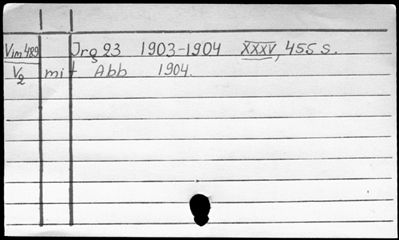 Vim 489 Jrg 23 1903-1904 XXXV, 455 S.
V2 mit Abb 1904.